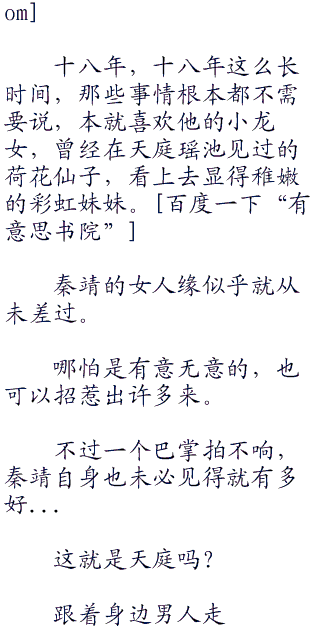 om]
十八年，十八年这么长
时间，那些事情根本都不需
要说，本就喜欢他的小龙
女，曾经在天庭瑶池见过的
荷花仙子，看上去显得稚嫩
的彩虹妹妹。[百度一下“有
意思书院”]
秦靖的女人缘似乎就从
未差过。
哪怕是有意无意的，也
可以招惹出许多来。
不过一个巴掌拍不响，
秦靖自身也未必见得就有多
好...
这就是天庭吗？
跟着身边男人走